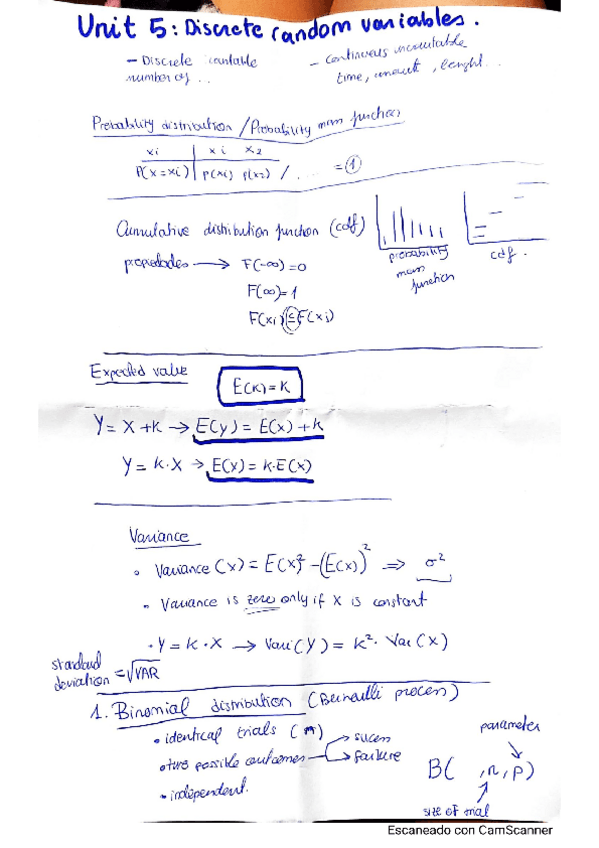 Unit 5: Discrete random variables.
- Discrete countable
number of ...
- Continuous uncountable
time, amount, lenght...
Probability distribution / Probability mass function
xi | xi x2
P(X=xi) | P(xi) P(x2) / .... = 1
Cumulative distribution function (cdf)
probability
mass
function
cdf.
propiedades → F(-∞)=0
F(∞)=1
F(xi) ≤ F(xj)
Expected value
E(K)=K
Y= X+K → E(y) = E(x)+k
Y= K·X → E(x)= K·E(x)
Variance
• Variance (x) = E(x)² -(E(x))² ⇒ σ²
• Variance is zero only if X is constant
• Y = K·X → Vari(Y) = K²· Var(X)
standard
deviation = √VAR
1. Binomial distribution (Bernoulli process)
• identical trials (n)
• two possible outcomes → sucess
→ failure
• independent.
parameter
B( ,n,p)
size of trial
Escaneado con CamScanner